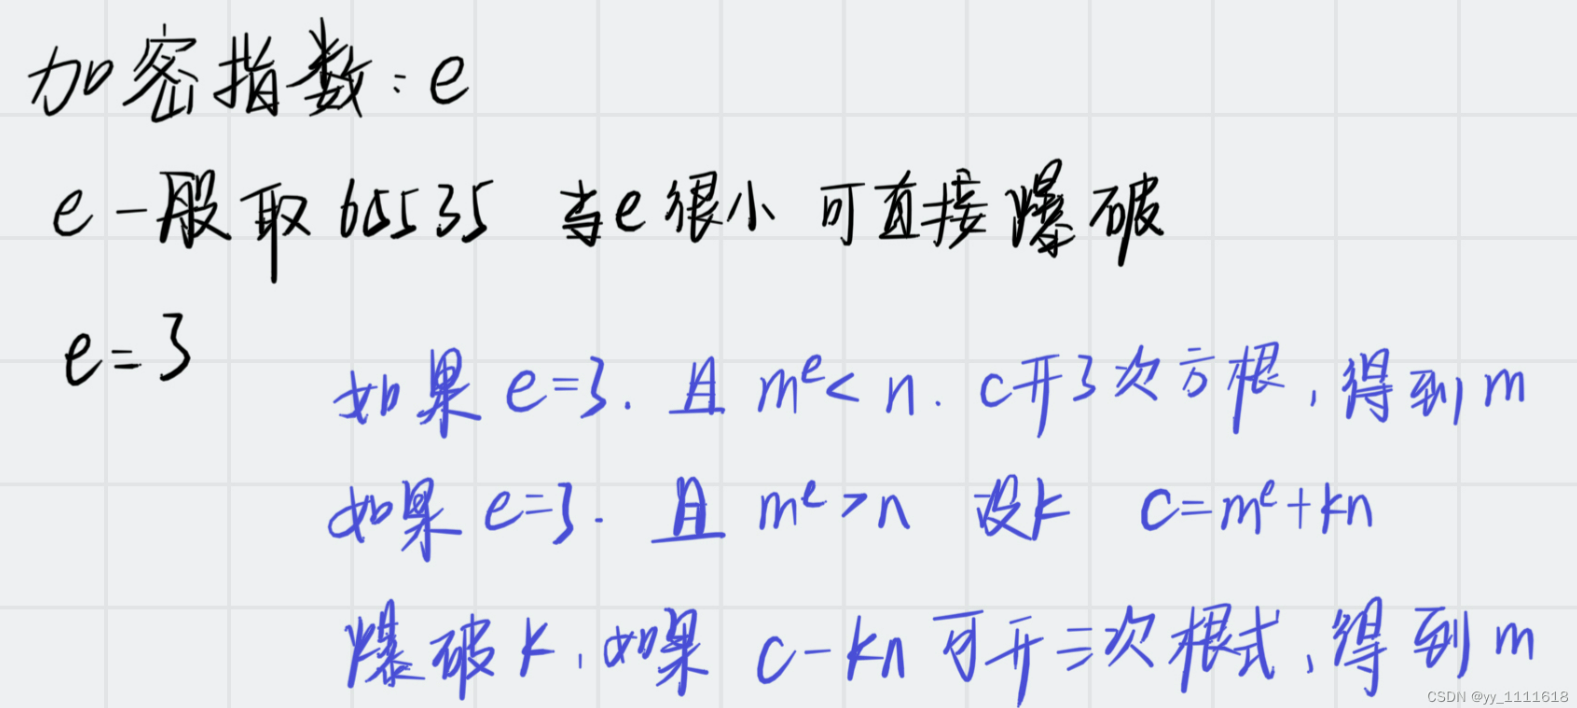 加密指数:e
e一般取65535 当e很小 可直接爆破
e=3
如果e=3.且m^e<n.c开3次方根,得到m
如果e=3.且m^e>n 设k c=m^e+kn
爆破k,如果c-kn可开三次根式,得到m
CSDN @yy_1111618